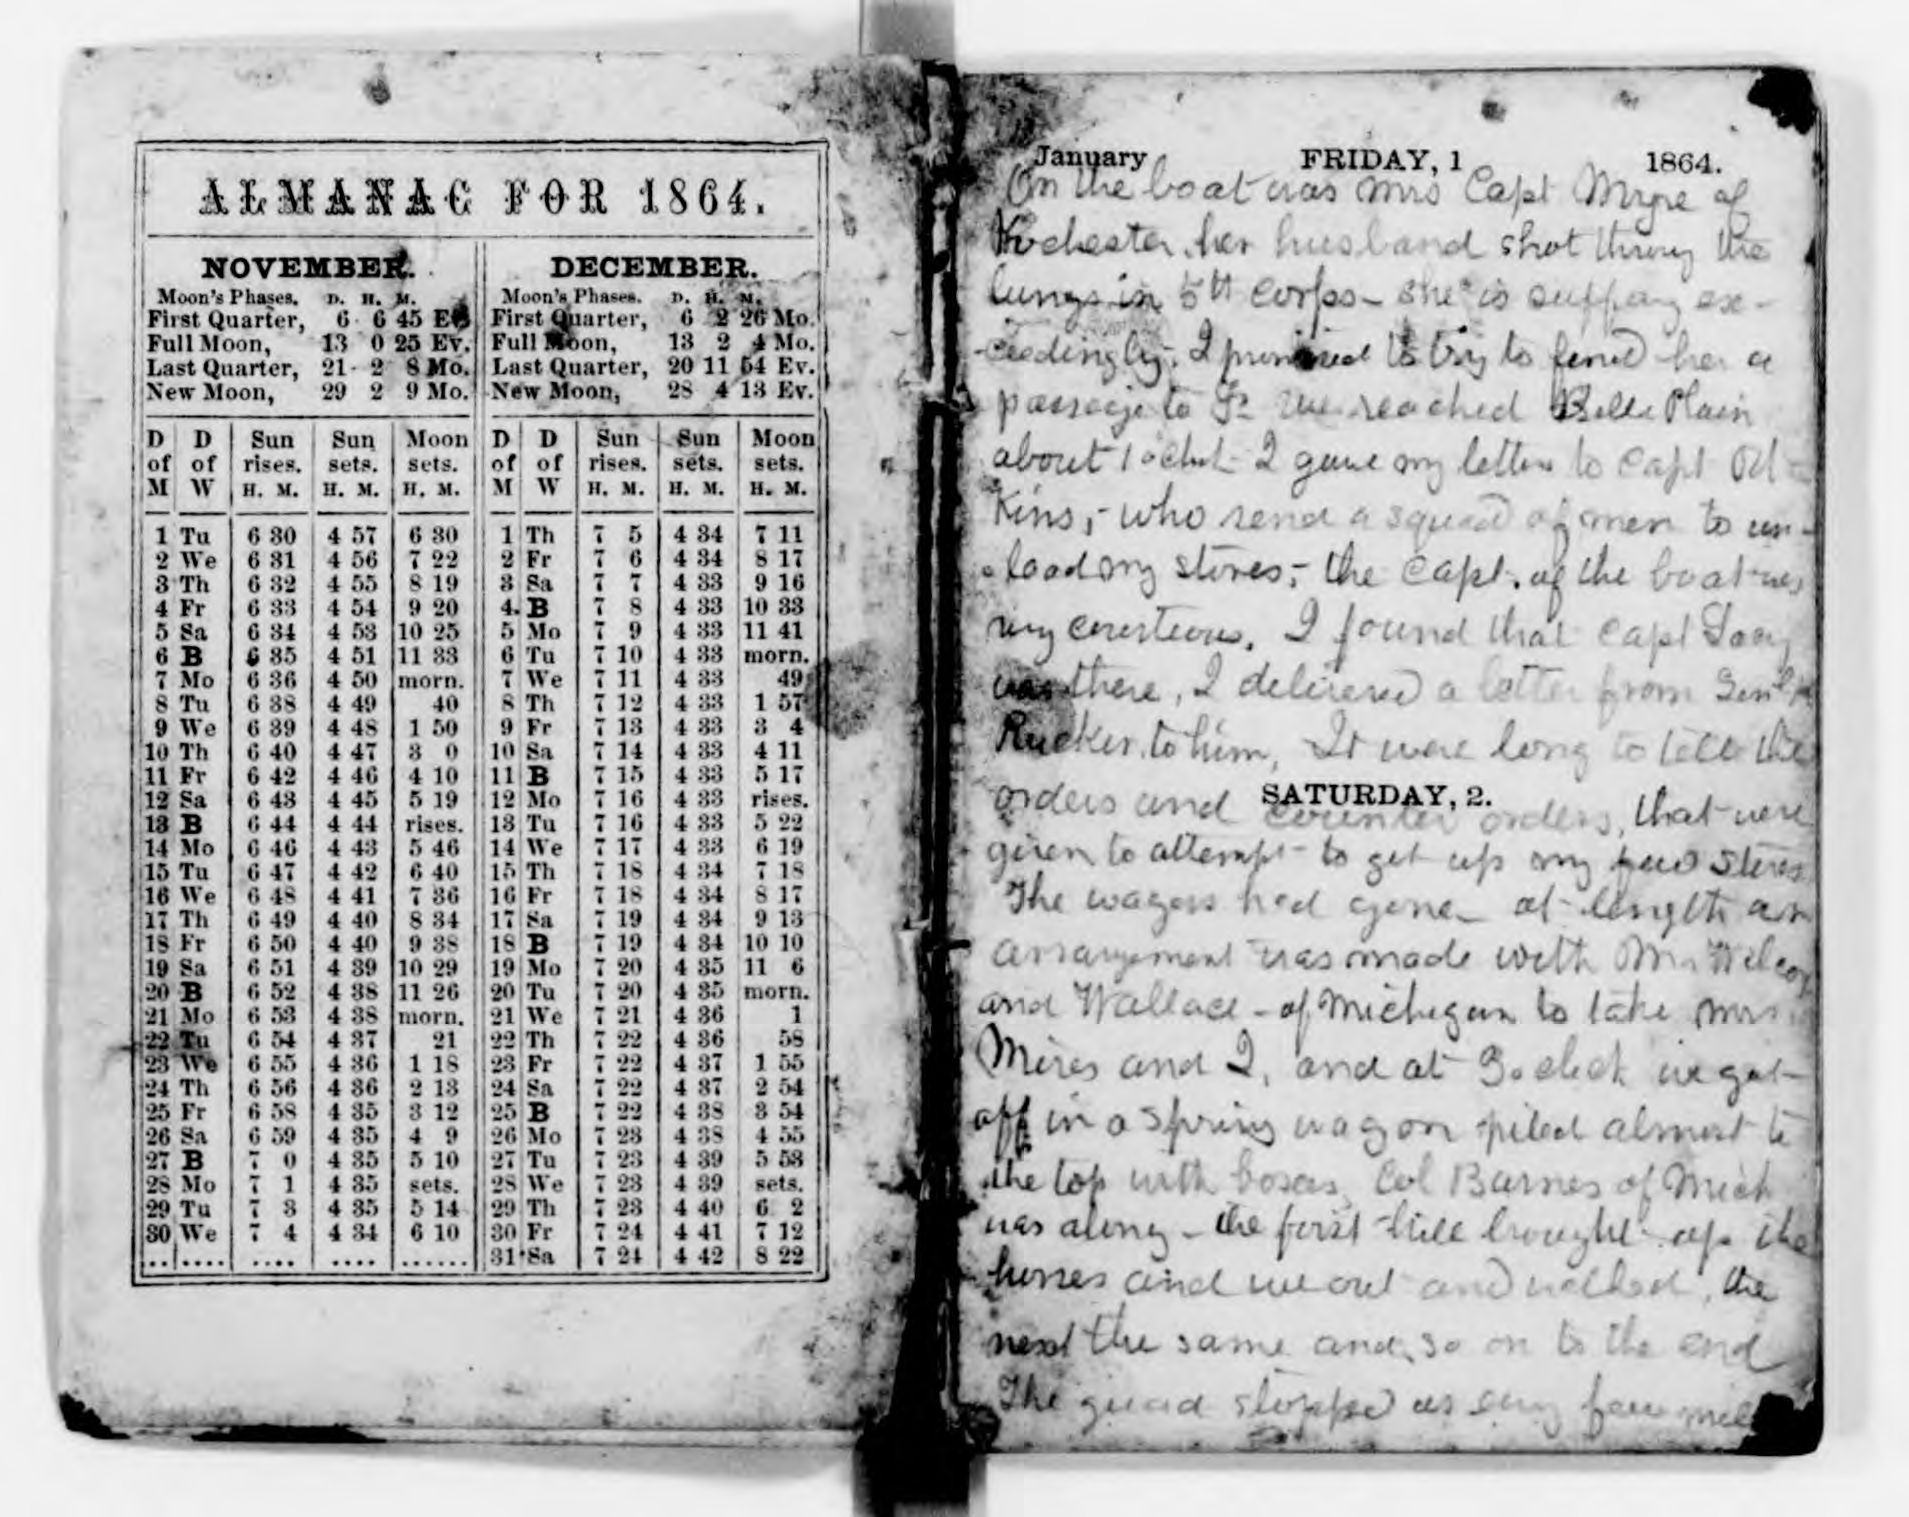 ALMANAC FOR 1864.
NOVEMBER.
Moon's Phases. D. H. M.
First Quarter, 6 6 45 Ev.
Full Moon, 13 0 25 Ev.
Last Quarter, 21 2 8 Mo.
New Moon, 29 2 9 Mo.
D of M D of W Sun rises. H. M. Sun sets. H. M. Moon sets. H. M.
1 Tu 6 30 4 57 6 30
2 We 6 31 4 56 7 22
3 Th 6 32 4 55 8 19
4 Fr 6 33 4 54 9 20
5 Sa 6 34 4 53 10 25
6 B 6 35 4 51 11 33
7 Mo 6 36 4 50 morn.
8 Tu 6 38 4 49 40
9 We 6 39 4 48 1 50
10 Th 6 40 4 47 3 0
11 Fr 6 42 4 46 4 10
12 Sa 6 43 4 45 5 19
13 B 6 44 4 44 rises.
14 Mo 6 46 4 43 5 46
15 Tu 6 47 4 42 6 40
16 We 6 48 4 41 7 36
17 Th 6 49 4 40 8 34
18 Fr 6 50 4 40 9 38
19 Sa 6 51 4 39 10 29
20 B 6 52 4 38 11 26
21 Mo 6 53 4 38 morn.
22 Tu 6 54 4 37 21
23 We 6 55 4 36 1 18
24 Th 6 56 4 36 2 13
25 Fr 6 58 4 35 3 12
26 Sa 6 59 4 35 4 9
27 B 7 0 4 35 5 10
28 Mo 7 1 4 35 sets.
29 Tu 7 3 4 35 5 14
30 We 7 4 4 34 6 10
DECEMBER.
Moon's Phases. D. H. M.
First Quarter, 6 2 26 Mo.
Full Moon, 13 2 4 Mo.
Last Quarter, 20 11 54 Ev.
New Moon, 28 4 13 Ev.
D of M D of W Sun rises. H. M. Sun sets. H. M. Moon sets. H. M.
1 Th 7 5 4 34 7 11
2 Fr 7 6 4 34 8 17
3 Sa 7 7 4 33 9 16
4 B 7 8 4 33 10 33
5 Mo 7 9 4 33 11 41
6 Tu 7 10 4 33 morn.
7 We 7 11 4 33 49
8 Th 7 12 4 33 1 57
9 Fr 7 13 4 33 3 4
10 Sa 7 14 4 33 4 11
11 B 7 15 4 33 5 17
12 Mo 7 16 4 33 rises.
13 Tu 7 16 4 33 5 22
14 We 7 17 4 33 6 19
15 Th 7 18 4 34 7 18
16 Fr 7 18 4 34 8 17
17 Sa 7 19 4 34 9 13
18 B 7 19 4 34 10 10
19 Mo 7 20 4 35 11 6
20 Tu 7 20 4 35 morn.
21 We 7 21 4 36 1
22 Th 7 22 4 36 58
23 Fr 7 22 4 37 1 55
24 Sa 7 22 4 37 2 54
25 B 7 22 4 38 3 54
26 Mo 7 23 4 38 4 55
27 Tu 7 23 4 39 5 53
28 We 7 23 4 39 sets.
29 Th 7 23 4 40 6 2
30 Fr 7 24 4 41 7 12
31 Sa 7 24 4 42 8 22
January FRIDAY, 1 1864.
On the boat was Mrs Capt of
Rochester, her husband shot throug the
lungs in 5th corps - she is suffering ex-
ceedingly. I promised to try to find her a
passage to Fr we reached Belle Plain
about 1 oclock I gave my letter to Capt
kins, - who send a squad of men to un-
load my stores, - the Capt. of the boat was
very courteous. I found that Capt
was there, I delivered a letter from Genl
Rucker to him, It were long to tell the
orders and counter orders, that were
SATURDAY, 2.
given to attempt to get up my few stores
The wagons had gone - at length an
arrangement was made with Mr Wilcox
and Wallace - of Michigan to take Mrs
Mires and I, and at 3 oclock we got
off in a spring wagon piled almost to
the top with boxes, Col Barnes of Mich
was along - the first hill brought up the
horses and we out and walked, the
next the same and so on to the end
The guard stopped us every few mile